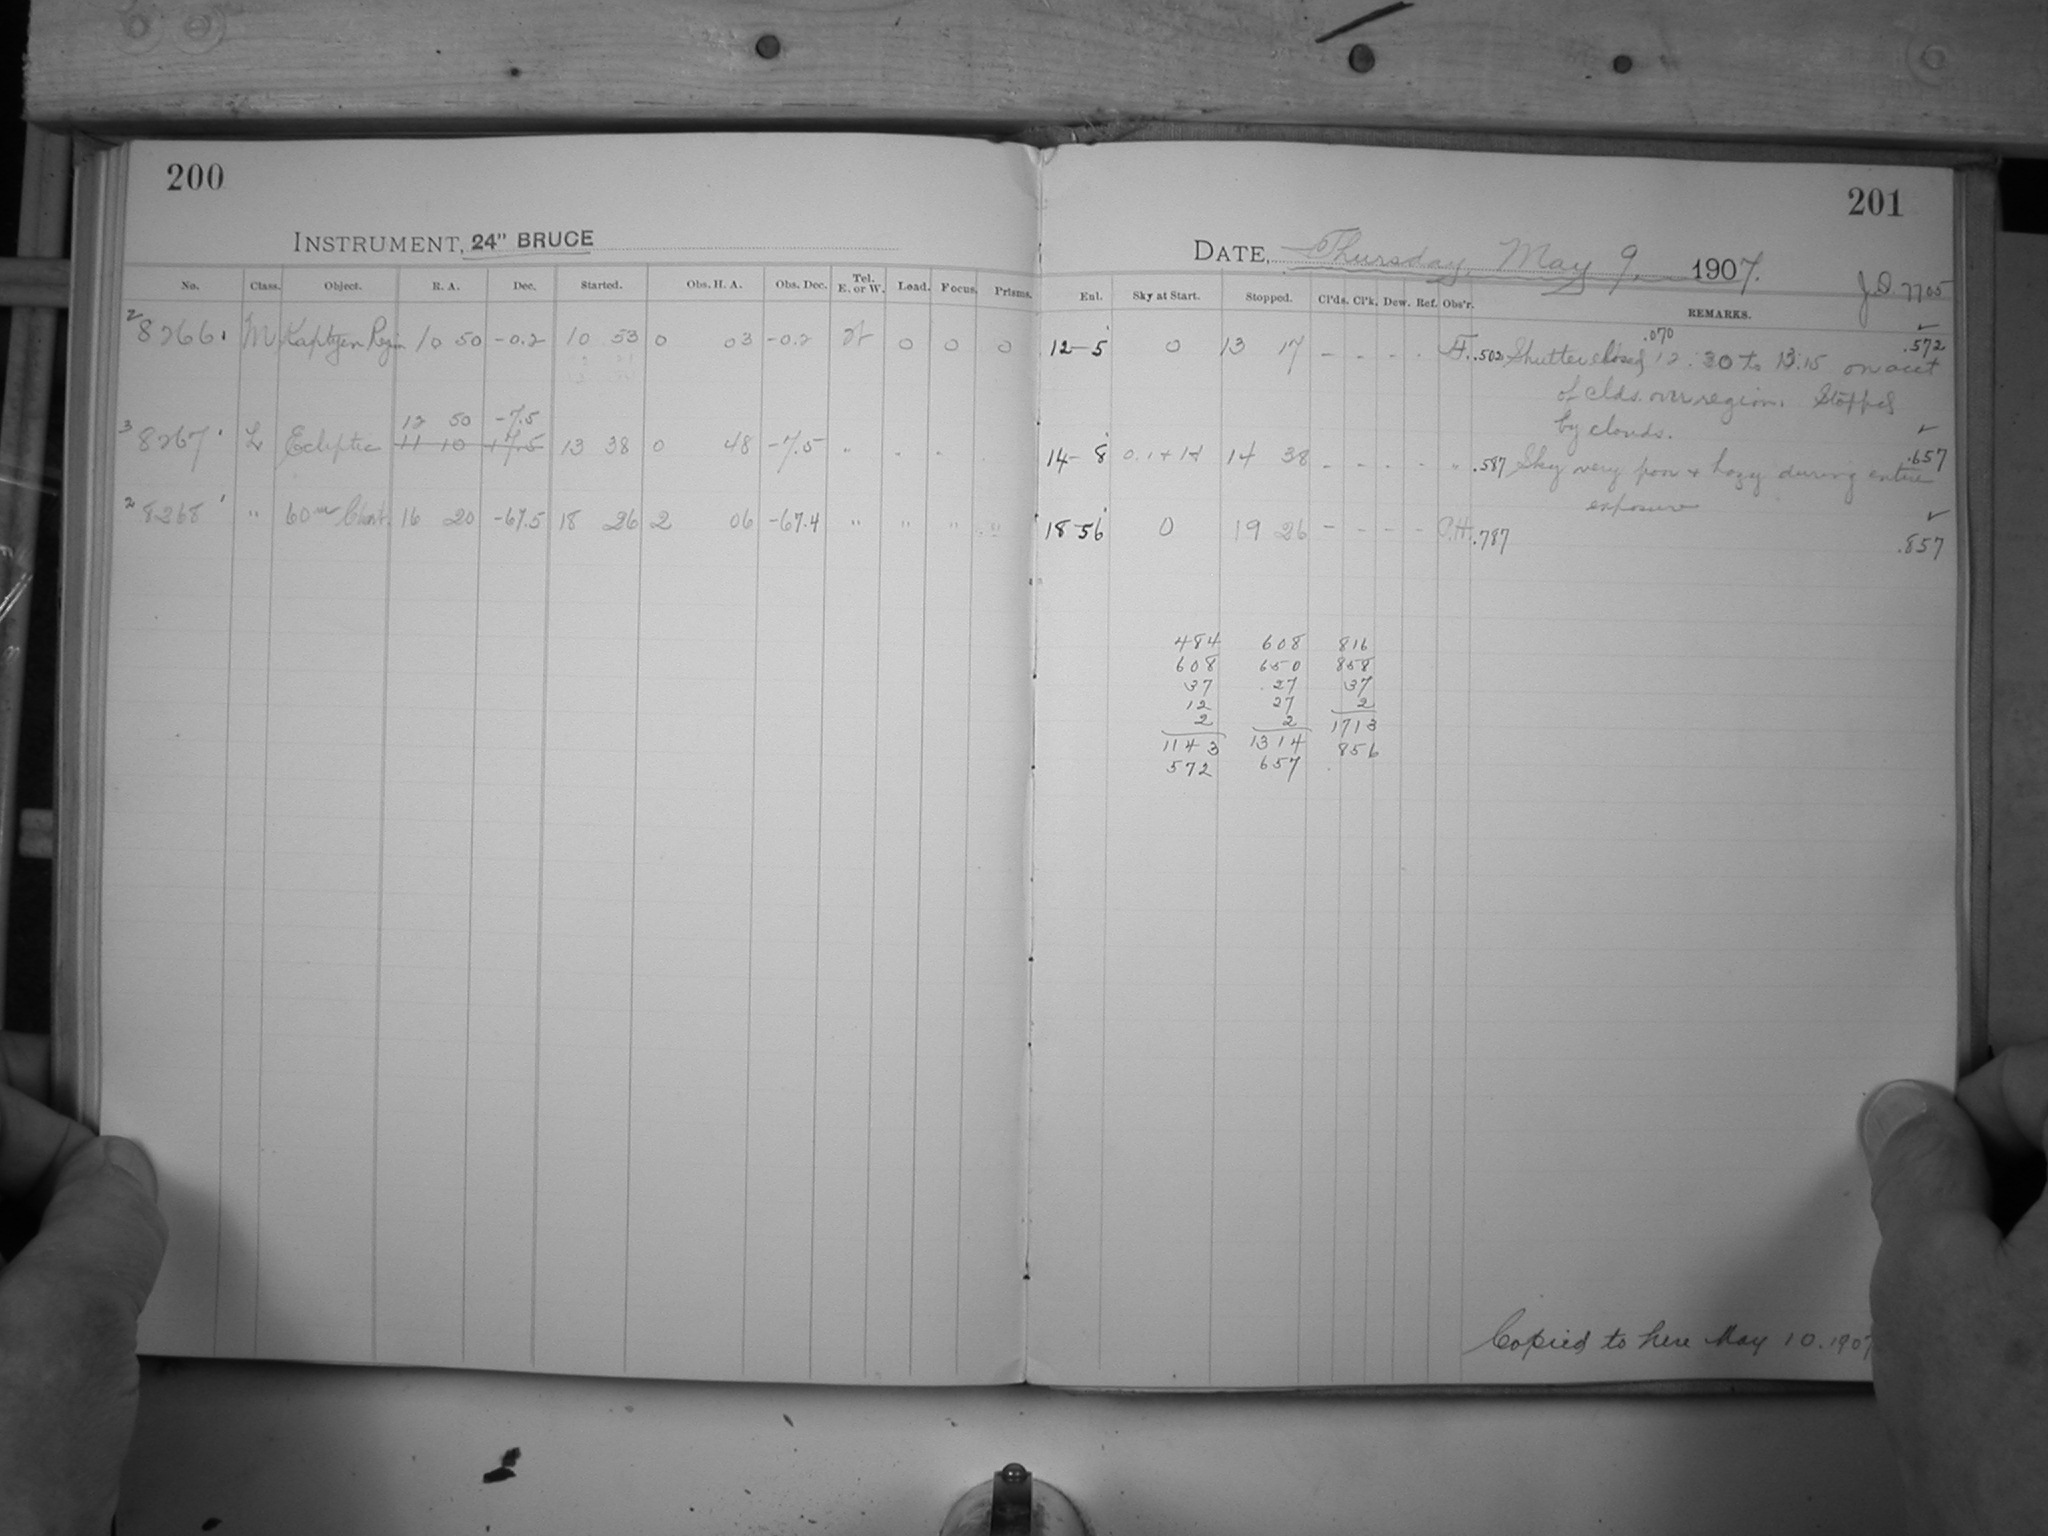 200
INSTRUMENT, 24" BRUCE
No. Class. Object. R. A. Dec. Started. Obs. H. A. Obs. Dec. Tel. E. or W. Load. Focus. Prisms.
2 8266 M Kapteyn Regn 10 50 -0.2 10 53 0 03 -0.2 W 0 0 0
12 50 -7.5
3 8267 L Ecliptic 11 10 +7.5 13 38 0 48 -7.5 " " "
2 8268 " 60m Chart 16 20 -67.5 18 26 2 06 -67.4 " " " "
201
DATE, Thursday, May 9, 1907.
J.D. 7705
Enl. Sky at Start. Stopped. Cl'ds. Cl'k. Dew. Ref. Obs'r. REMARKS.
.070
12-5 0 13 17 - - - - .502 Shutter closed 12.30 to 13.15 on acct .572
of clds. over region. Stopped
by clouds.
14-8 14 38 - - - - " .587 Sky very poor + hazy during entire .657
exposure
18-56 0 19 26 - - - - .787 .857
484 608 816
608 650 858
37 27 37
12 27 2
2 2 1713
1143 1314 856
572 657
Copied to here May 10. 1907